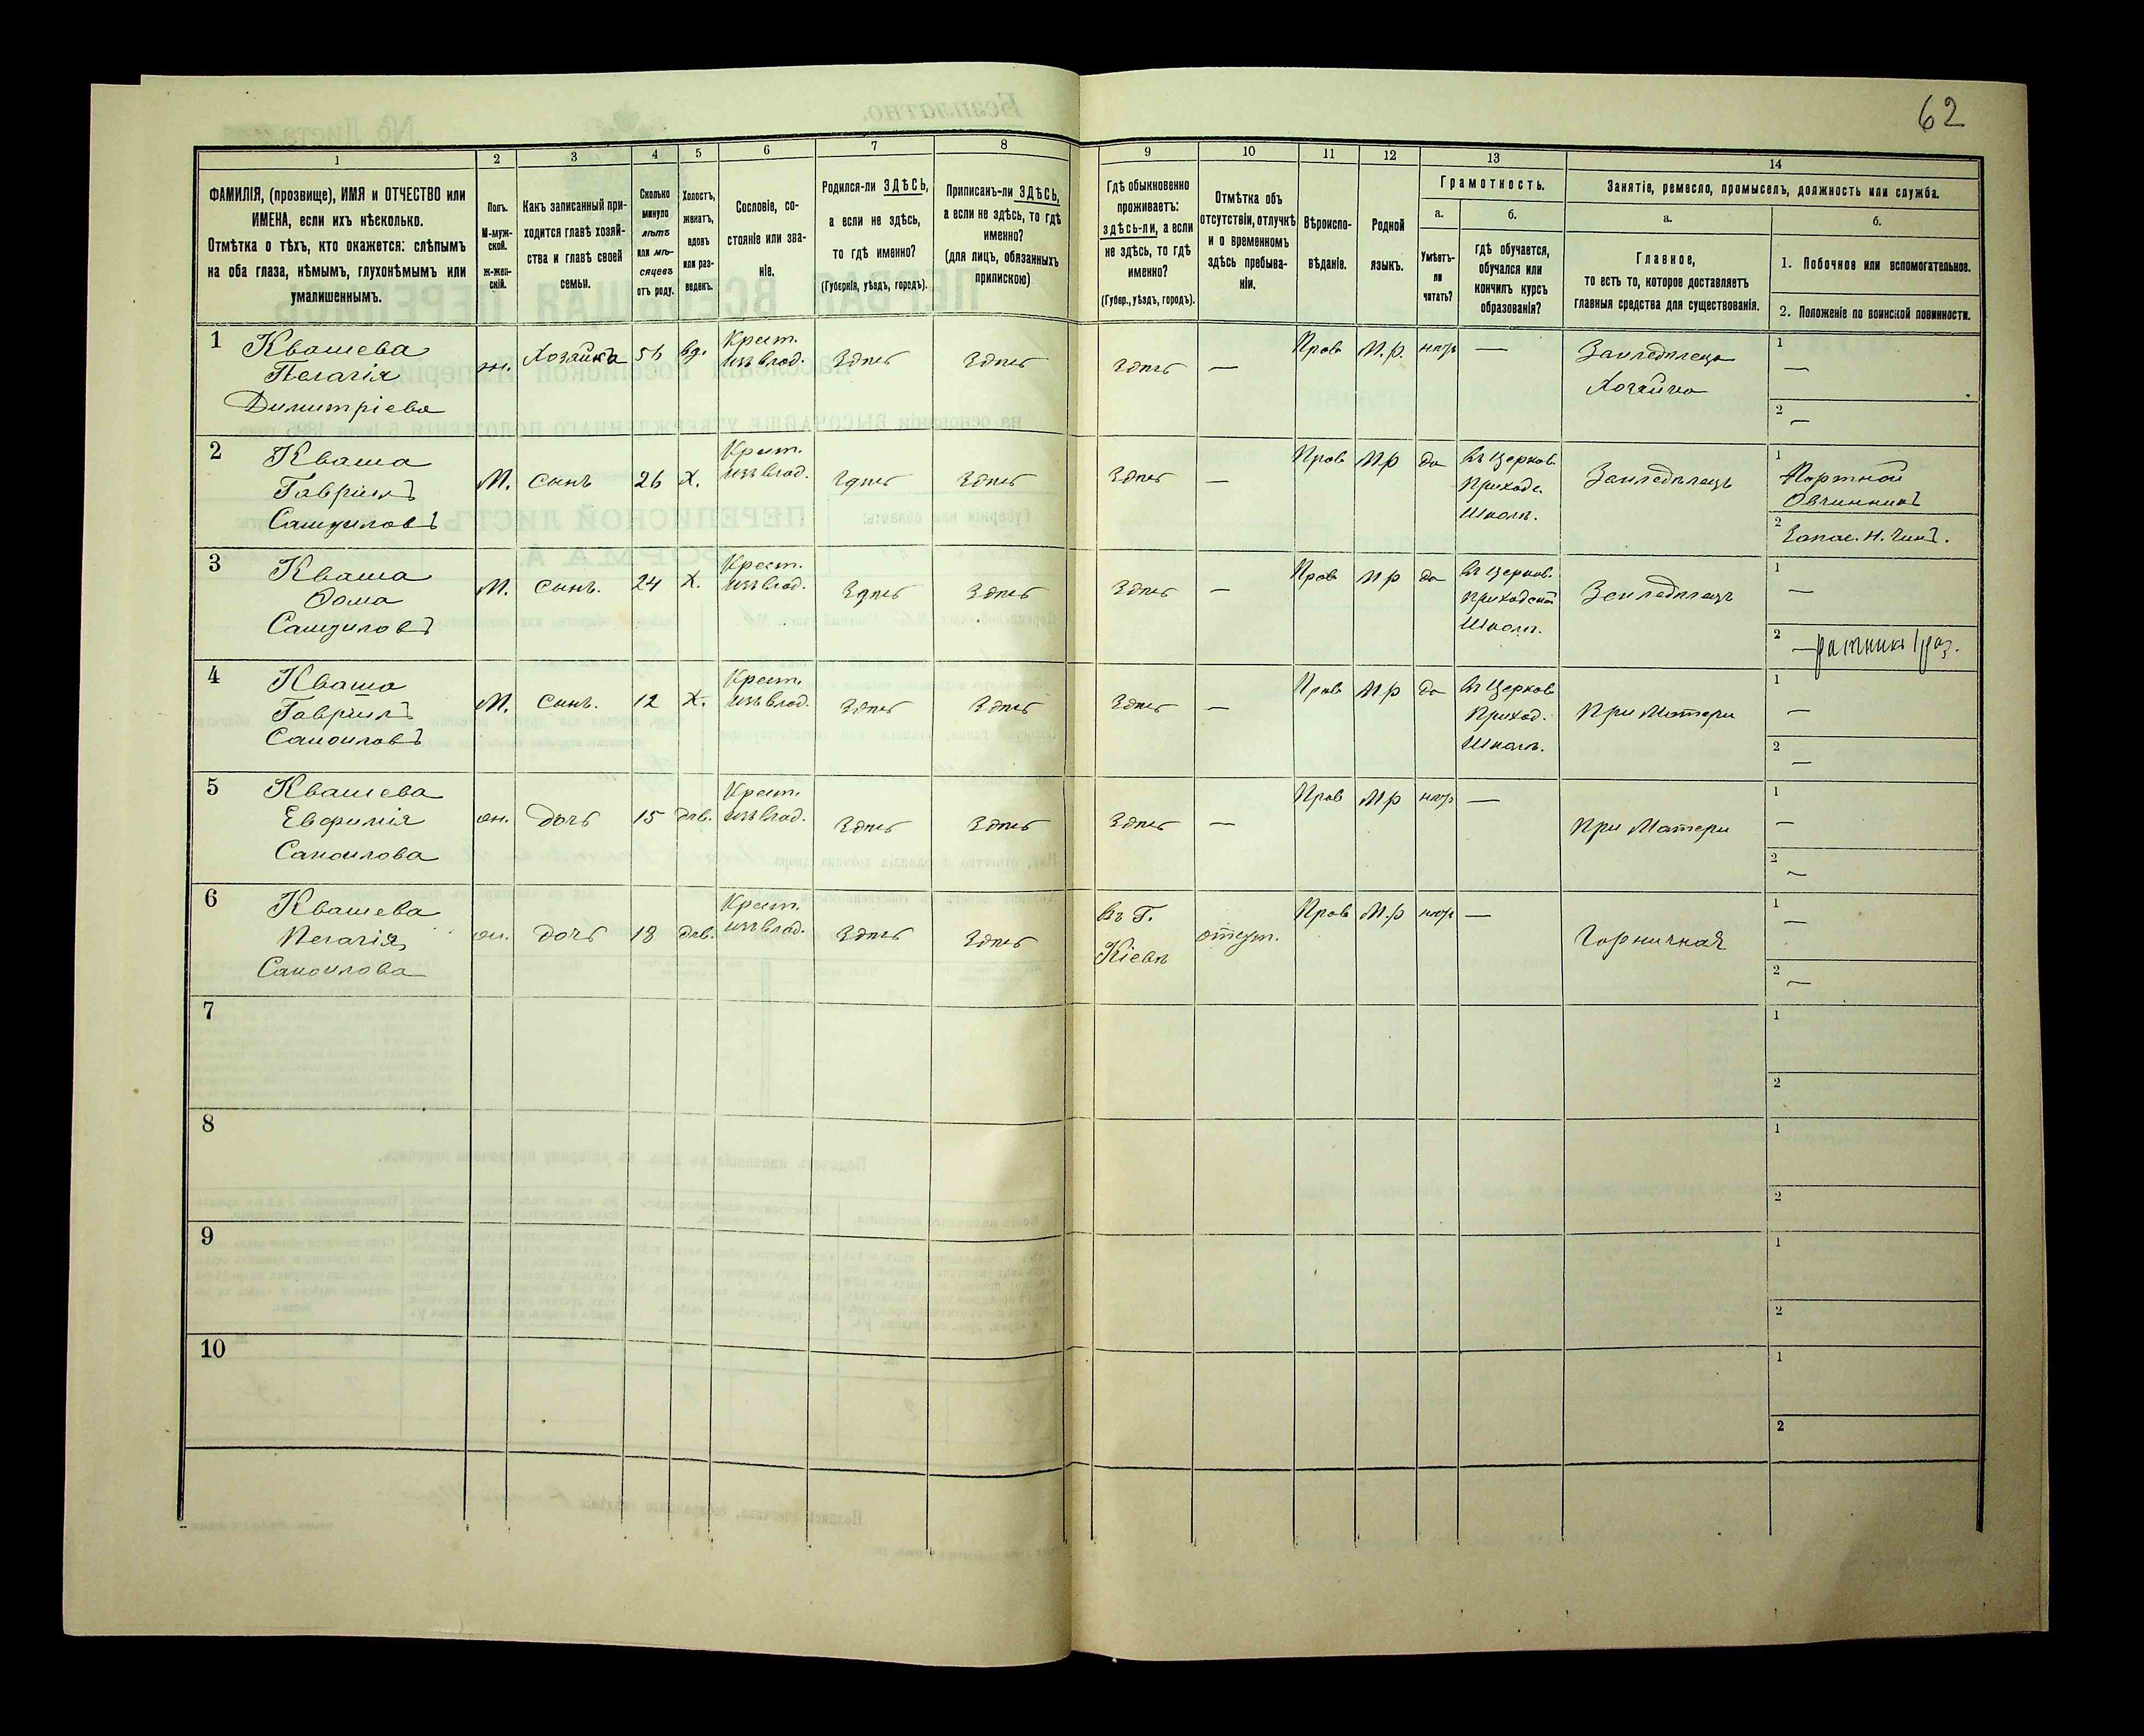 62
1
2
3
4
5
6
7
8
9
10
11
12
13
14
ФАМИЛІЯ, (прозвище), ИМЯ и ОТЧЕСТВО или
ИМЕНА, если ихъ нѣсколько.
Отмѣтка о тѣхъ, кто окажется: слѣпымъ
на оба глаза, нѣмымъ, глухонѣмымъ или
умалишеннымъ.
Полъ.
М-муж-
ской.
ж-жен-
скій.
Какъ записанный при-
ходится главѣ хозяй-
ства и главѣ своей
семьи.
Сколько
минуло
лѣтъ
или мѣ-
сяцевъ
отъ роду.
Холостъ,
женатъ,
вдовъ
или раз-
веденъ.
Сословіе, со-
стояніе или зва-
ніе.
Родился-ли ЗДѢСЬ,
а если не здѣсь,
то гдѣ именно?
(Губернія, уѣздъ, городъ).
Приписанъ-ли ЗДѢСЬ,
а если не здѣсь, то гдѣ
именно?
(для лицъ, обязанныхъ
припискою)
Гдѣ обыкновенно
проживаетъ:
здѣсь-ли, а если
не здѣсь, то гдѣ
именно?
(Губер., уѣздъ, городъ).
Отмѣтка объ
отсутствіи, отлучкѣ
и о временномъ
здѣсь пребыва-
ніи.
Вѣроиспо-
вѣданіе.
Родной
языкъ.
Грамотность.
а.
Умѣетъ-
ли
читать?
б.
гдѣ обучается,
обучался или
кончилъ курсъ
образованія?
Занятіе, ремесло, промыселъ, должность или служба.
а.
Главное,
то есть то, которое доставляетъ
главныя средства для существованія.
б.
1. Побочное или вспомогательное.
2. Положеніе по воинской повинности.
1
Квашева
Пелагія
Димитріева
ж.
Хозяйка
56
вд.
Крест.
изъ влад.
Здѣсь
Здѣсь
Здѣсь
—
Прав
М.р.
нѣтъ
—
Земледѣлецъ
Хозяйка
1
—
2
—
2
Кваша
Гавріилъ
Самуиловъ
М.
сынъ
26
Х.
Крест.
изъ влад.
Здѣсь
Здѣсь
Здѣсь
—
Прав
М.р
да
въ Церков.
Приход.
Школѣ.
Земледѣлецъ
1
Портной
Овчинникъ
2
Запас. н. чинъ.
3
Кваша
Ѳома
Самуиловъ
М.
сынъ.
24
Х.
Крест.
изъ влад.
Здѣсь
Здѣсь
Здѣсь
—
Прав
М.р
да
въ Церков.
Приходской
Школѣ.
Земледѣлецъ
1
—
2
— ратникъ 1 раз.
4
Кваша
Гавріилъ
Самоиловъ
М.
сынъ.
12
Х.
Крест.
изъ влад.
Здѣсь
Здѣсь
Здѣсь
—
Прав
М.р
да
въ Церков.
Приход.
Школѣ.
При Матери
1
—
2
—
5
Квашева
Евфимія
Самоилова
ж.
дочь
15
дѣв.
Крест.
изъ влад.
Здѣсь
Здѣсь
Здѣсь
—
Прав
М.р
нѣтъ
—
При Матери
1
—
2
—
6
Квашева
Пелагія
Самоилова
ж.
дочь
18
дѣв.
Крест.
изъ влад.
Здѣсь
Здѣсь
въ Г.
Кіевѣ
отсут.
Прав
М.р
нѣтъ
—
Горничная
1
—
2
—
7
1
2
8
1
2
9
1
2
10
1
2